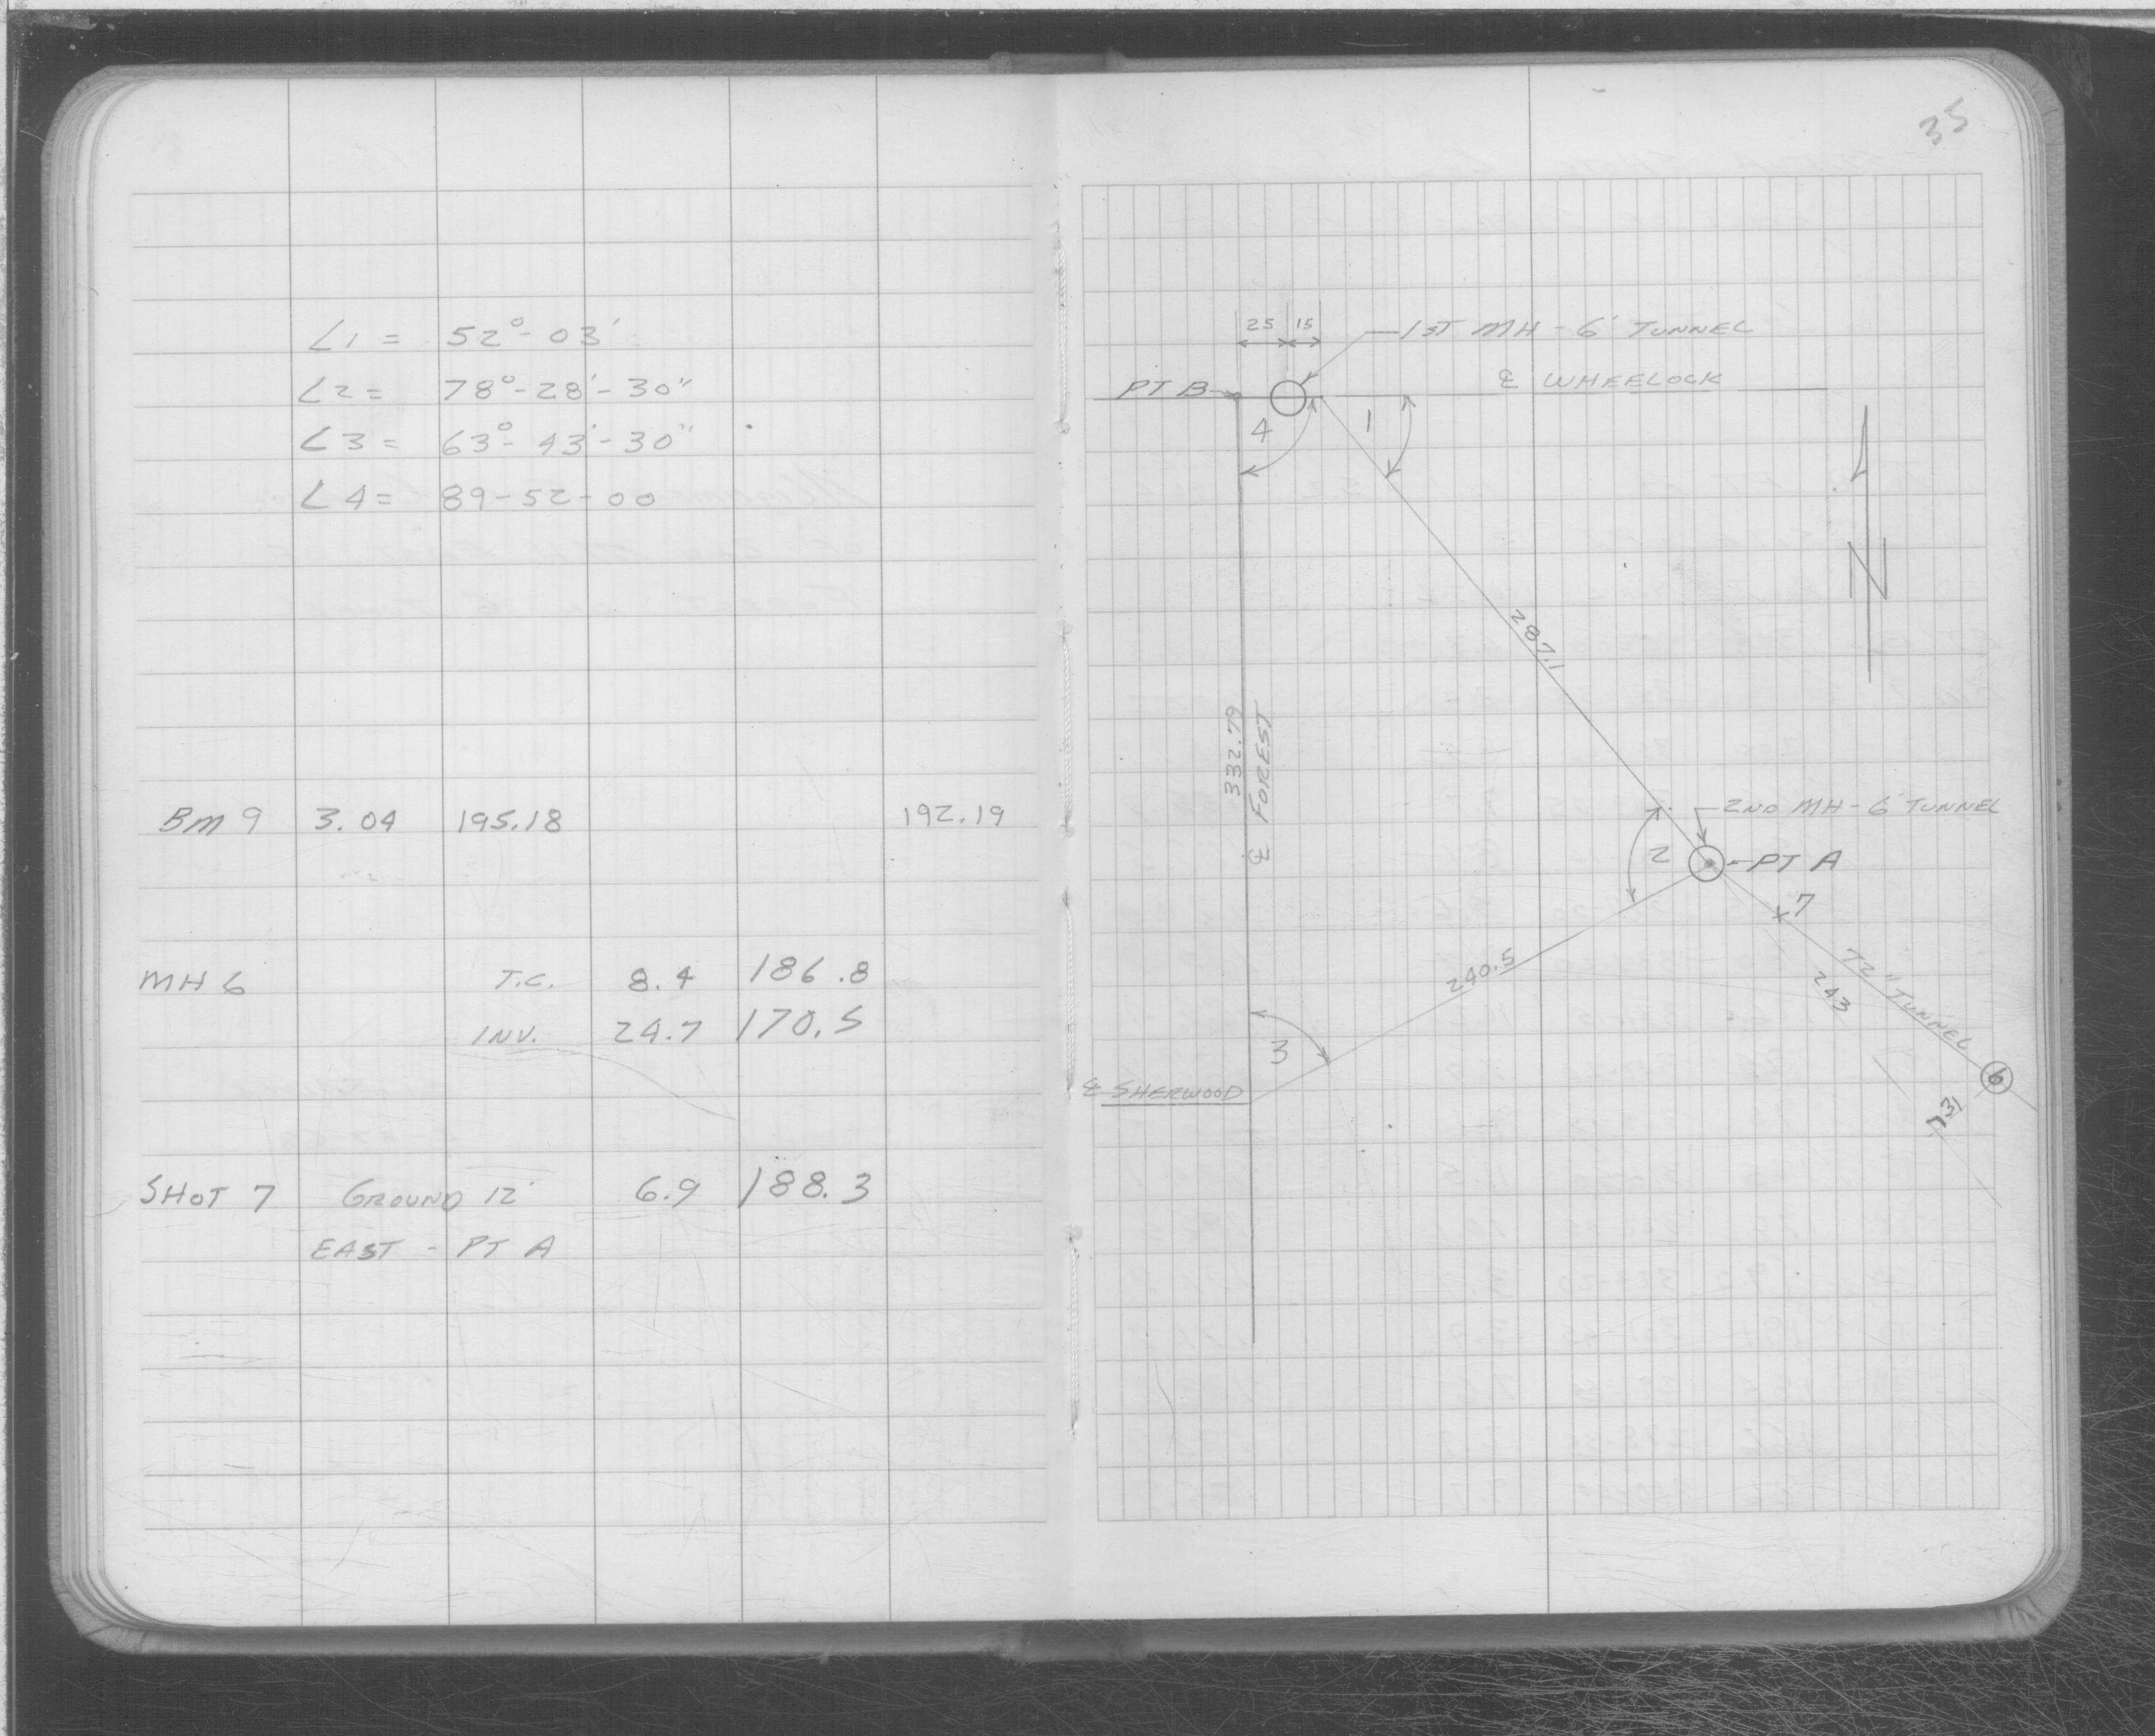 ∠1 = 52°-03'
∠2 = 78°-28'-30"
∠3 = 63°-43'-30"
∠4 = 89-52-00
BM 9 3.04 195.18 192.19
MH 6 T.C. 8.4 186.8
INV. 24.7 170.5
SHOT 7 GROUND 12' 6.9 188.3
EAST - PT A
35
25 15
1ST MH - 6' TUNNEL
PT B
℄ WHEELOCK
4
1
N
287.1
332.79
℄ FOREST
2ND MH - 6' TUNNEL
2
PT A
7
240.5
72" TUNNEL
243
3
℄ SHERWOOD
6